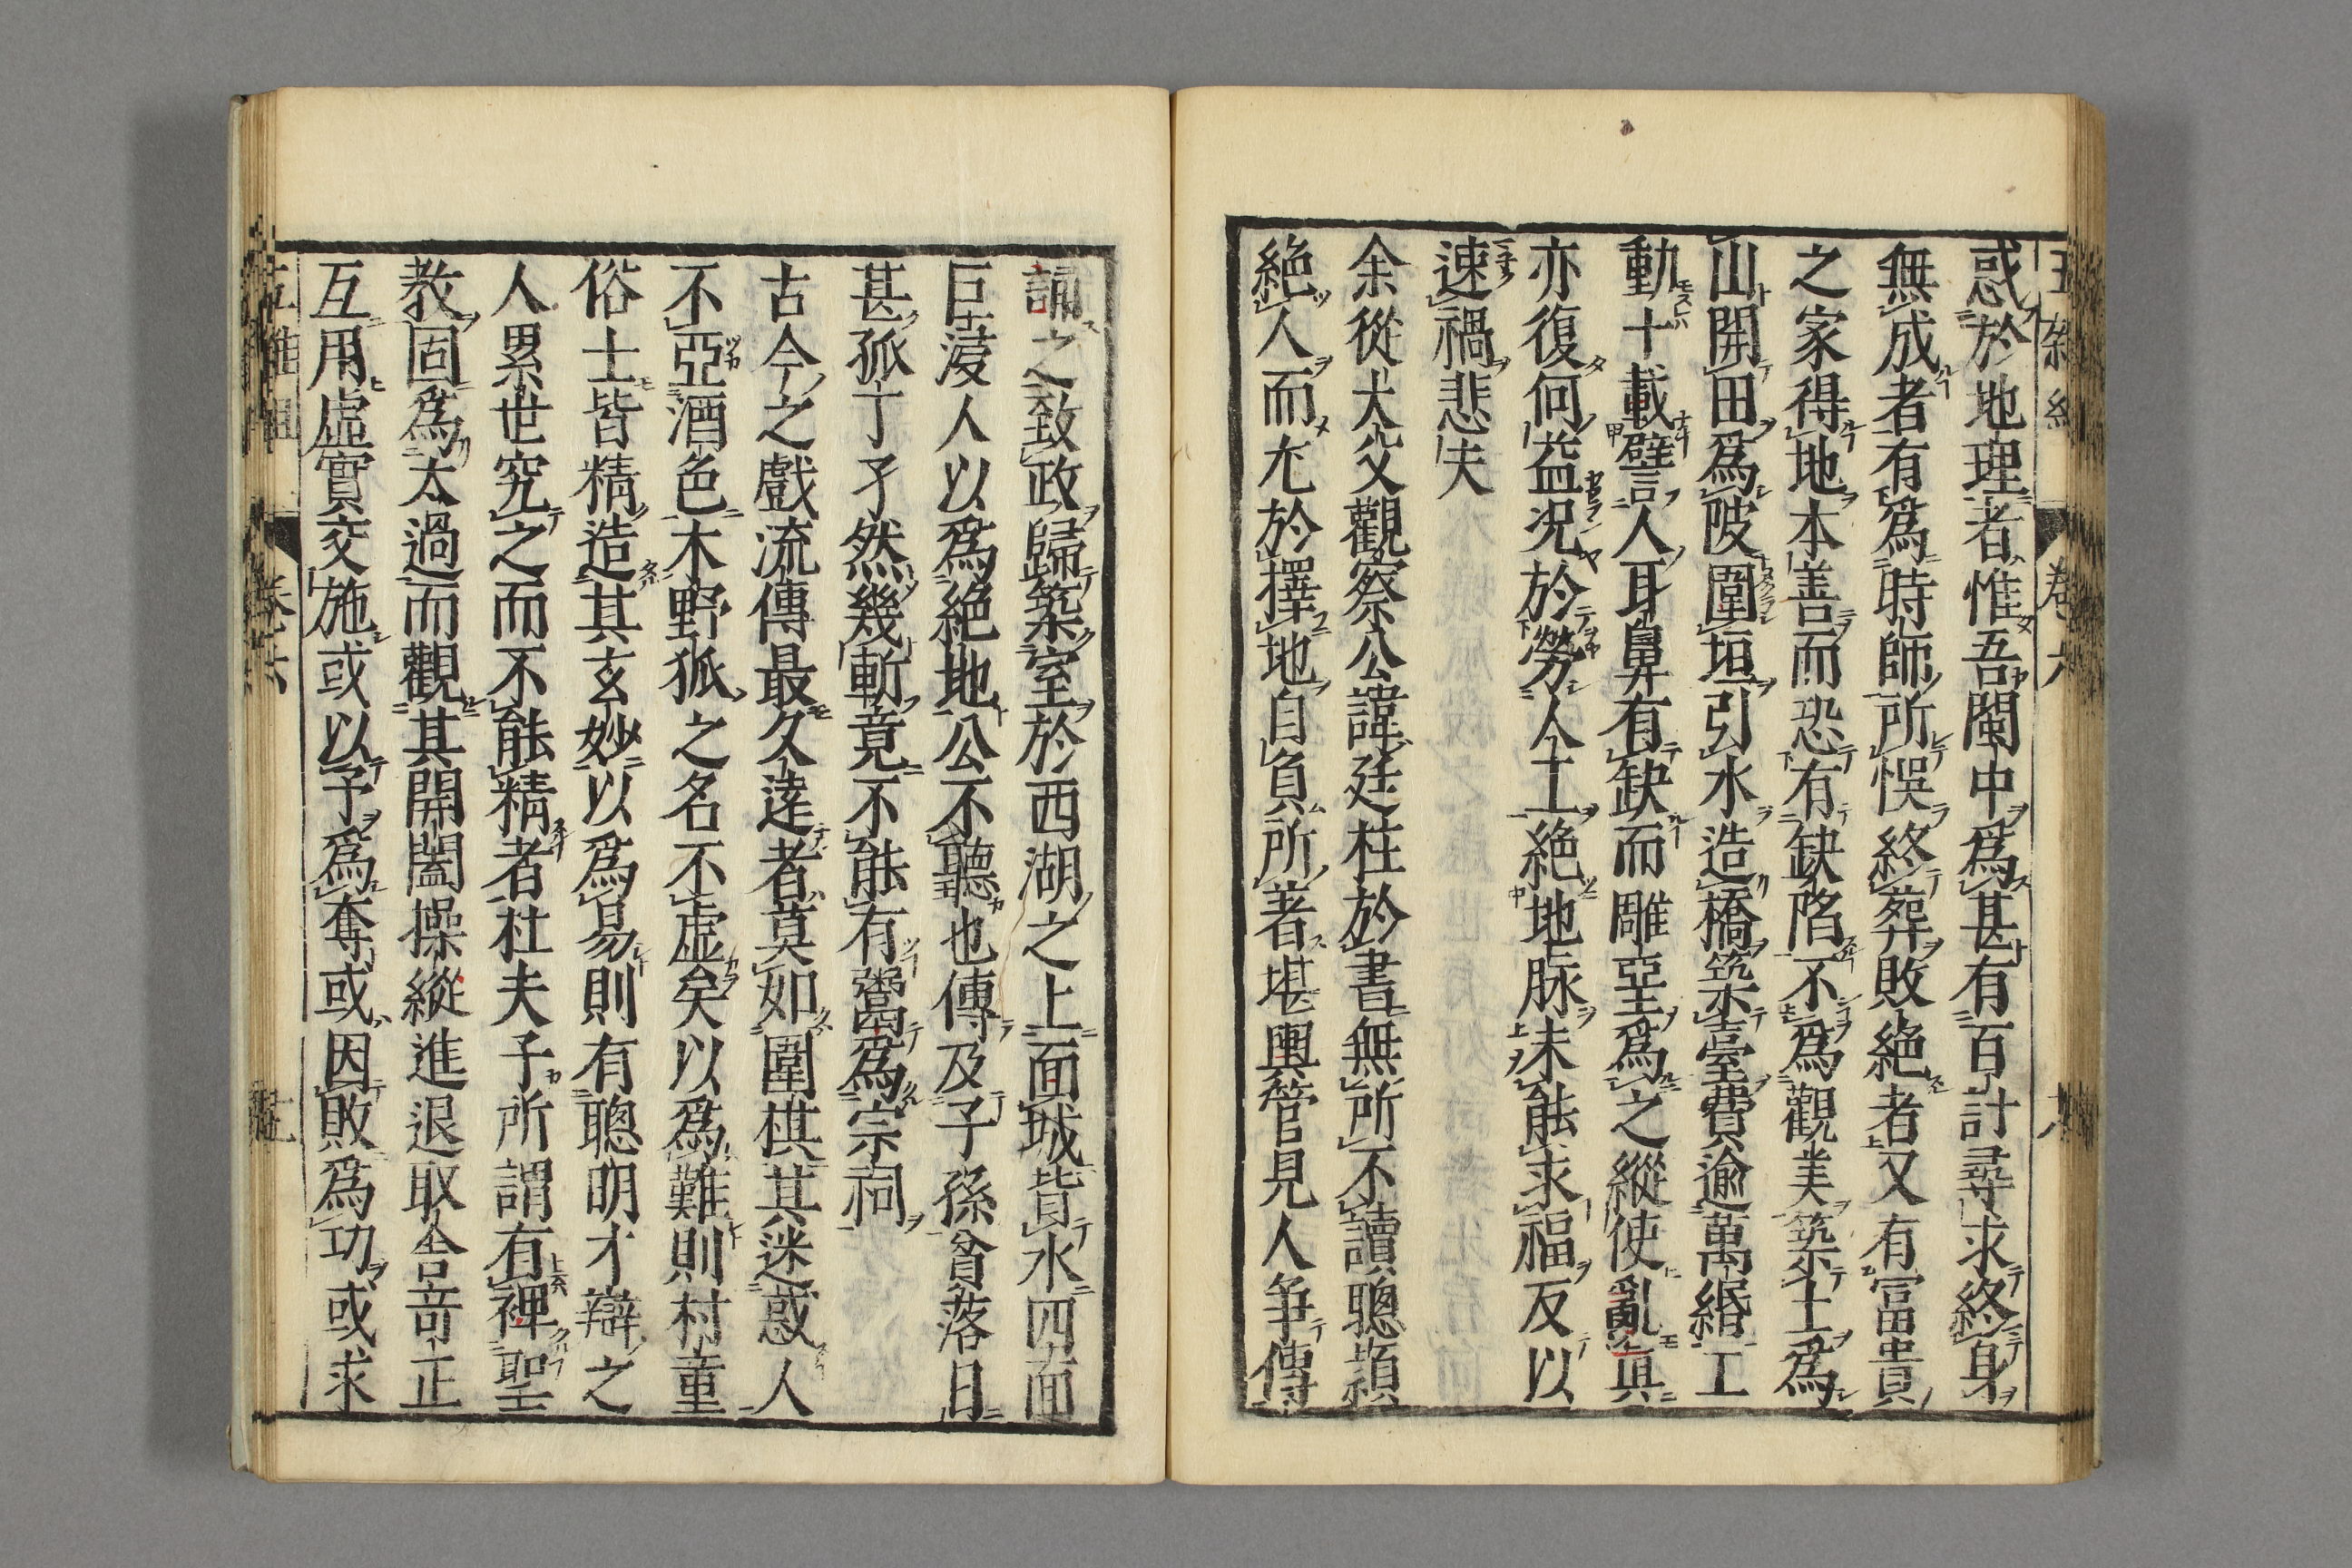 惑於地理者惟吾閩中爲甚有百計尋求終身
無成者有爲時師所悞終葬敗絶者又有富貴
之家得地本善而恐有缺陷不爲觀美築土爲
山開田爲陂圍垣引水造橋築臺費逾萬緡工
動十載譬人耳鼻有缺而雕堊爲之縱使亂真
亦復何益况於勞人工絶地脉未能求福反以
速禍悲夫
余從大父觀察公諱廷柱於書無所不讀聰穎
絶人而尤於擇地自負所著堪輿管見人争傳
誦之致政歸築室於西湖之上面城背水四面
巨浸人以爲絶地公不聽也傳及子孫貧落日
甚孤丁孑然幾斬竟不能有鬻爲宗祠
古今之戲流傳最久遠者莫如圍棋其迷惑人
不亞酒色木野狐之名不虚矣以爲難則村童
俗士皆精造其玄妙以爲易則有聰明才辯之
人累世究之而不能精者杜夫子所謂有裨聖
教固爲太過而觀其開闔操縱進退取舍奇正
互用虛實交施或以予爲奪或因敗爲功或求
卷六